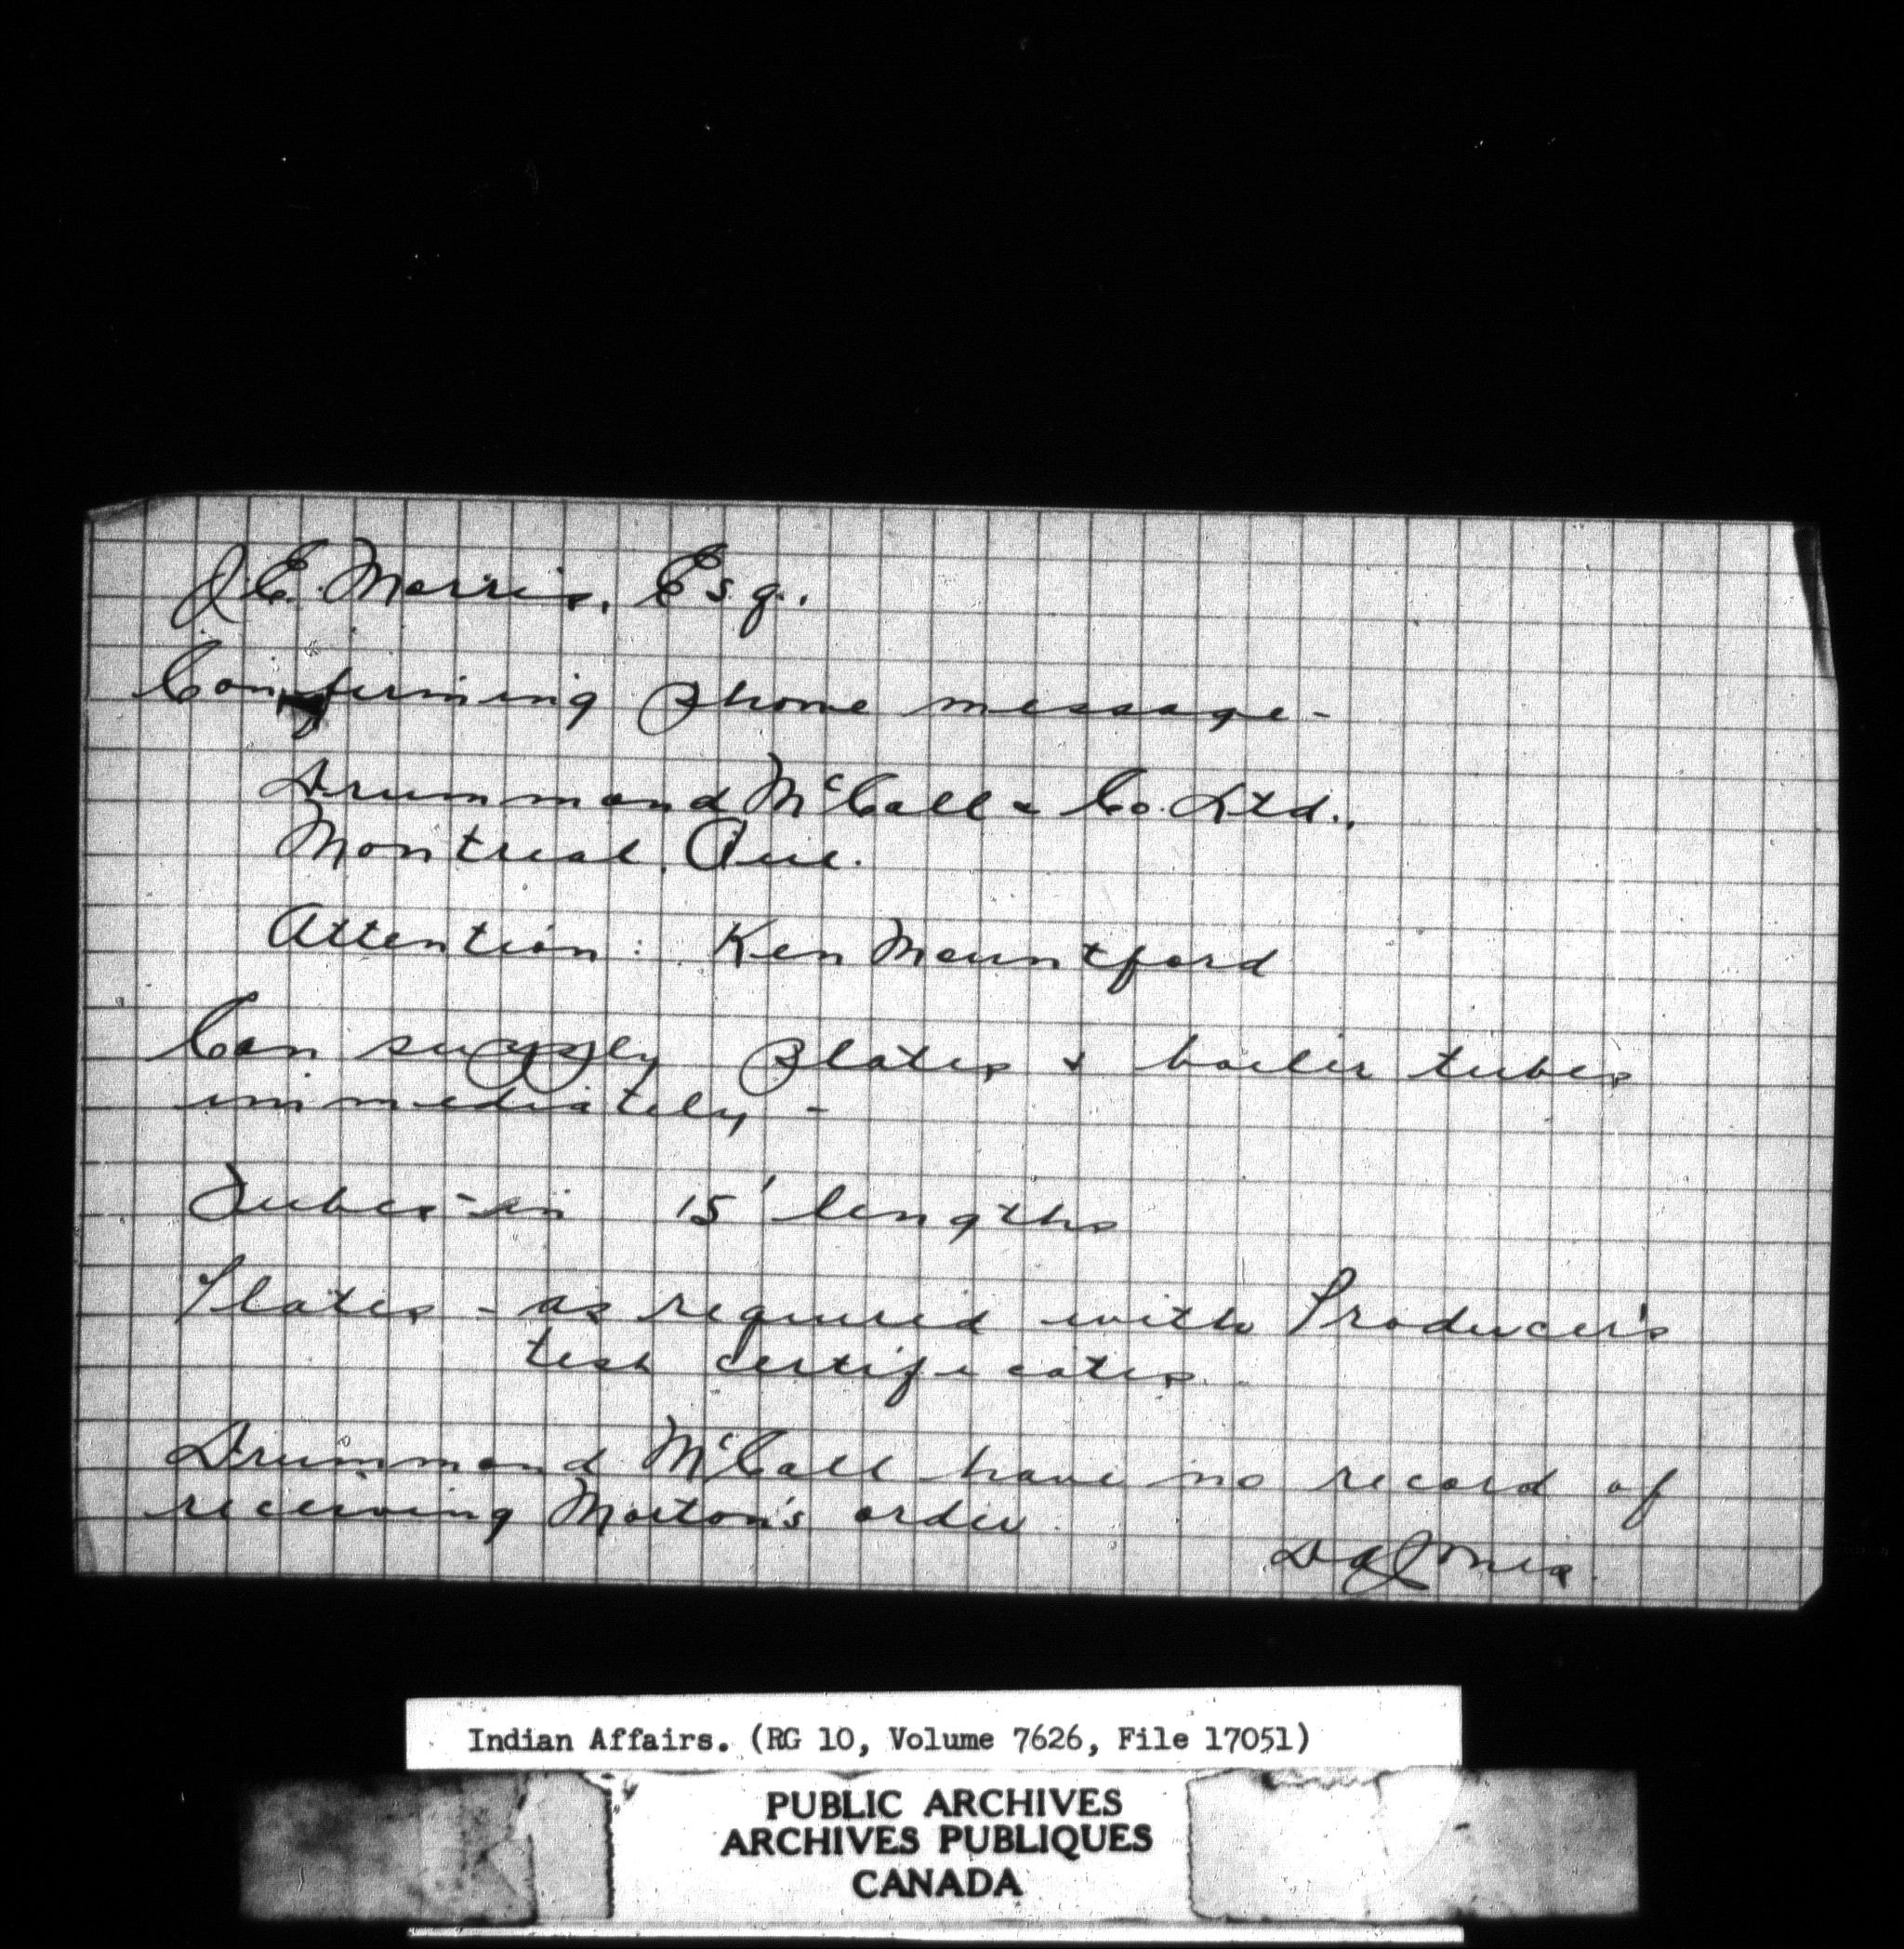 J.E. Morris, Esq.,
Confirming phone message -
Drummond McCall & Co. Ltd.,
Montreal, Que.
Attention: Ken Mountford
Can supply plates & boiler tubes
immediately -
Tubes - in 15' lengths
Plates - as required with Producer's
test certificates
Drummond McCall have no record of
receiving Morton's order.
Jones.
Indian Affairs. (RG 10, Volume 7626, File 17051)
PUBLIC ARCHIVES
ARCHIVES PUBLIQUES
CANADA